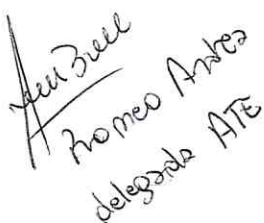 Romeo Andrea
delegada ATE